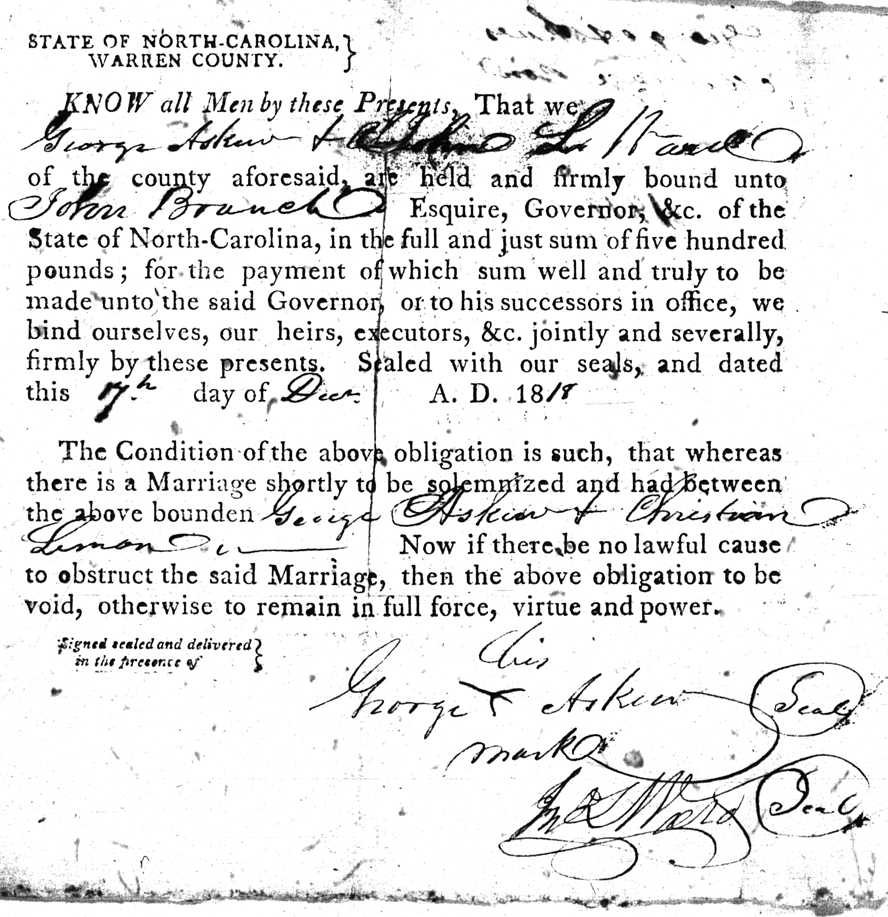 STATE OF NORTH-CAROLINA, }
WARREN COUNTY.
KNOW all Men by these Presents, That we
George Askew & John L. Ward
of the county aforesaid, are held and firmly bound unto
John Branch Esquire, Governor, &c. of the
State of North-Carolina, in the full and just sum of five hundred
pounds; for the payment of which sum well and truly to be
made unto the said Governor, or to his successors in office, we
bind ourselves, our heirs, executors, &c. jointly and severally,
firmly by these presents. Sealed with our seals, and dated
this 17th day of Decr. A. D. 1818
The Condition of the above obligation is such, that whereas
there is a Marriage shortly to be solemnized and had between
the above bounden George Askew & Christian
Limon Now if there be no lawful cause
to obstruct the said Marriage, then the above obligation to be
void, otherwise to remain in full force, virtue and power.
Signed sealed and delivered }
in the presence of
his
George X Askew Seal
mark
Jno L Ward Seal